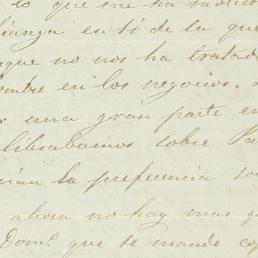 lo que me ha motiv
fianza en ti de la que
que no nos ha tratad
ombre en los negocios. a
una gran parte en
librabamos sobre Pa
cian la preferencia so
ahora no hay mas q
que te mande co